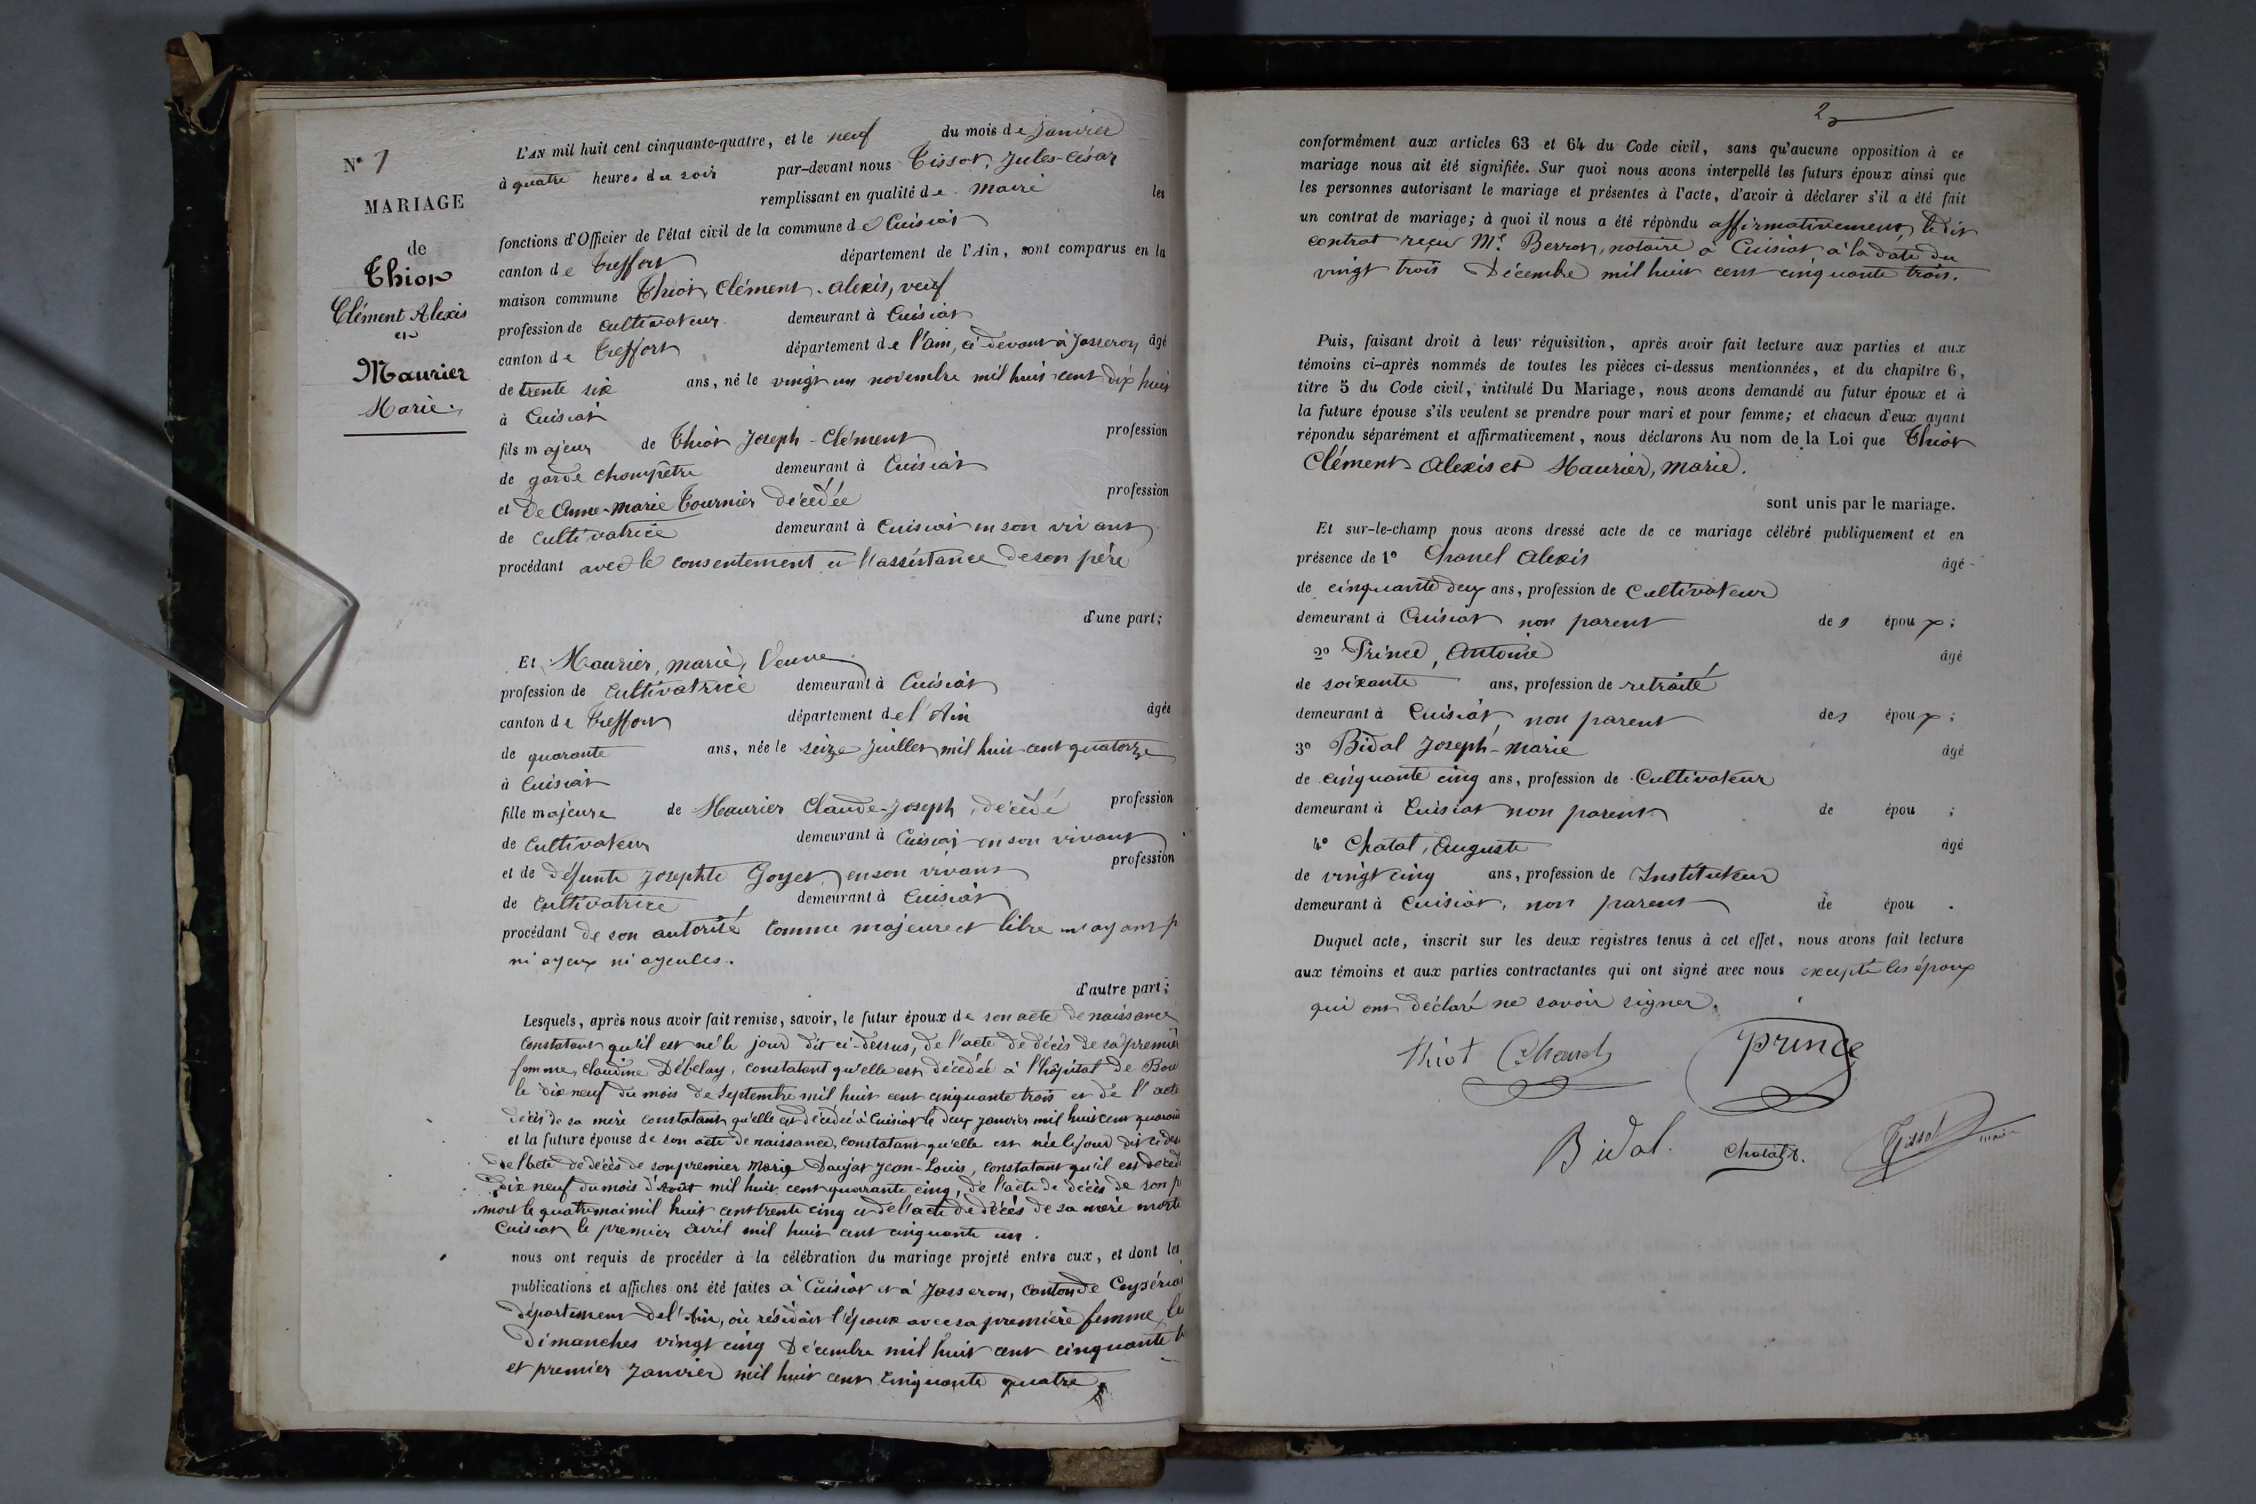 N° 1
MARIAGE
de
Thiot
Clément Alexis
et
Maurier
Marie.
L'AN mil huit cent cinquante-quatre, et le neuf du mois de janvier
à quatre heures du soir par-devant nous Tissot, Jules-César
remplissant en qualité de maire les
fonctions d'Officier de l'état civil de la commune de Cuisiat
canton de Treffort département de l'Ain, sont comparus en la
maison commune Thiot, Clément-Alexis, veuf
profession de cultivateur demeurant à Cuisiat
canton de Treffort département de l'ain, ci devant à Jasseron, âgé
de trente six ans, né le vingt un novembre mil huit cent dix huit
à Cuisiat
fils majeur de Thiot Joseph-Clément profession
de garde champêtre demeurant à Cuisiat
et de Anne-Marie Tournier décédée profession
de cultivatrice demeurant à Cuisiat en son vivant
procédant avec le consentement et l'assistance de son père
d'une part;
Et Maurier, marie, Veuve
profession de cultivatrice demeurant à Cuisiat
canton de Treffort département de l'Ain âgée
de quarante ans, née le seize juillet mil huit cent quatorze
à Cuisiat
fille majeure de Maurier Claude-Joseph, décédé profession
de cultivateur demeurant à Cuisiat en son vivant
et de défunte Josephte Goyet en son vivant profession
de cultivatrice demeurant à Cuisiat
procédant de son autorité comme majeure et libre n'ayant p
ni ayeux ni ayeules.
d'autre part;
Lesquels, après nous avoir fait remise, savoir, le futur époux de son acte de naissance
constatant qu'il est né le jour dit ci-dessus, de l'acte de décès de sa premiè
femme, Claudine Débelay, constatant qu'elle est décédée à l'hôpital de Bou
le dix neuf du mois de Septembre mil huit cent cinquante trois et de l'acte
décès de sa mère constatant qu'elle est décédée à Cuisiat le deux janvier mil huit cent quaran
et la future épouse de son acte de naissance, constatant qu'elle est née le jour dit ci des
de l'acte de décès de son premier Mari Daujat Jean-Louis, constatant qu'il est décéd
dix neuf du mois d'Août mil huit cent quarante cinq, de l'acte de décès de son p
mort le quatre mai mil huit cent trente cinq et de l'acte de décès de sa mère morte
Cuisiat le premier avril mil huit cent cinquante un.
nous ont requis de procéder à la célébration du mariage projeté entre eux, et dont les
publications et affiches ont été faites à Cuisiat et à Jasseron, canton de Ceyséria
département de l'Ain, où résidait l'époux avec sa première femme, les
dimanches vingt cinq Décembre mil huit cent cinquante t
et premier Janvier mil huit cent cinquante quatre
2
conformément aux articles 63 et 64 du Code civil, sans qu'aucune opposition à ce
mariage nous ait été signifiée. Sur quoi nous avons interpellé les futurs époux ainsi que
les personnes autorisant le mariage et présentes à l'acte, d'avoir à déclarer s'il a été fait
un contrat de mariage; à quoi il nous a été répondu affirmativement, le dit
contrat reçu Me Berrot, notaire à Cuisiat à la date du
vingt trois Décembre mil huit cent cinquante trois.
Puis, faisant droit à leur réquisition, après avoir fait lecture aux parties et aux
témoins ci-après nommés de toutes les pièces ci-dessus mentionnées, et du chapitre 6,
titre 5 du Code civil, intitulé Du Mariage, nous avons demandé au futur époux et à
la future épouse s'ils veulent se prendre pour mari et pour femme; et chacun d'eux ayant
répondu séparément et affirmativement, nous déclarons Au nom de la Loi que Thiot
Clément Alexis et Maurier, Marie.
sont unis par le mariage.
Et sur-le-champ nous avons dressé acte de ce mariage célébré publiquement et en
présence de 1° Chanel Alexis âgé
de cinquante deux ans, profession de cultivateur
demeurant à Cuisiat non parent des époux;
2° Prince, Antoine âgé
de soixante ans, profession de retraité
demeurant à Cuisiat, non parent des époux;
3° Bidal Joseph-Marie âgé
de cinquante cinq ans, profession de Cultivateur
demeurant à Cuisiat non parent de épou ;
4° Chatal, Auguste âgé
de vingt cinq ans, profession de Instituteur
demeurant à Cuisiat, non parent de épou .
Duquel acte, inscrit sur les deux registres tenus à cet effet, nous avons fait lecture
aux témoins et aux parties contractantes qui ont signé avec nous excepté les époux
qui ont déclaré ne savoir signer.
thiot Chanel Prince
Bidal. Tissot maire